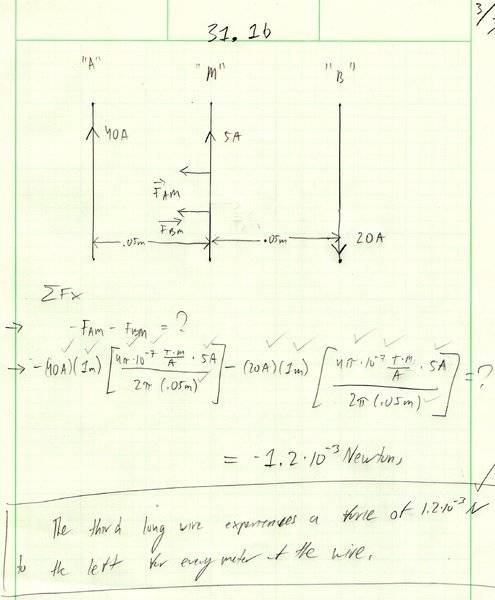 31.16
3/
"A" "M" "B"
40A 5A
F_AM
F_BM
.05m .05m 20A
ΣFx
→ -F_AM - F_BM = ?
→ -(40A)(1m) [4π·10⁻⁷ T·m/A · 5A / 2π(.05m)] - (20A)(1m) [4π·10⁻⁷ T·m/A · 5A / 2π(.05m)] = ?
= -1.2·10⁻³ Newtons
The third long wire experiences a force of 1.2·10⁻³ N
to the left for every meter of the wire.